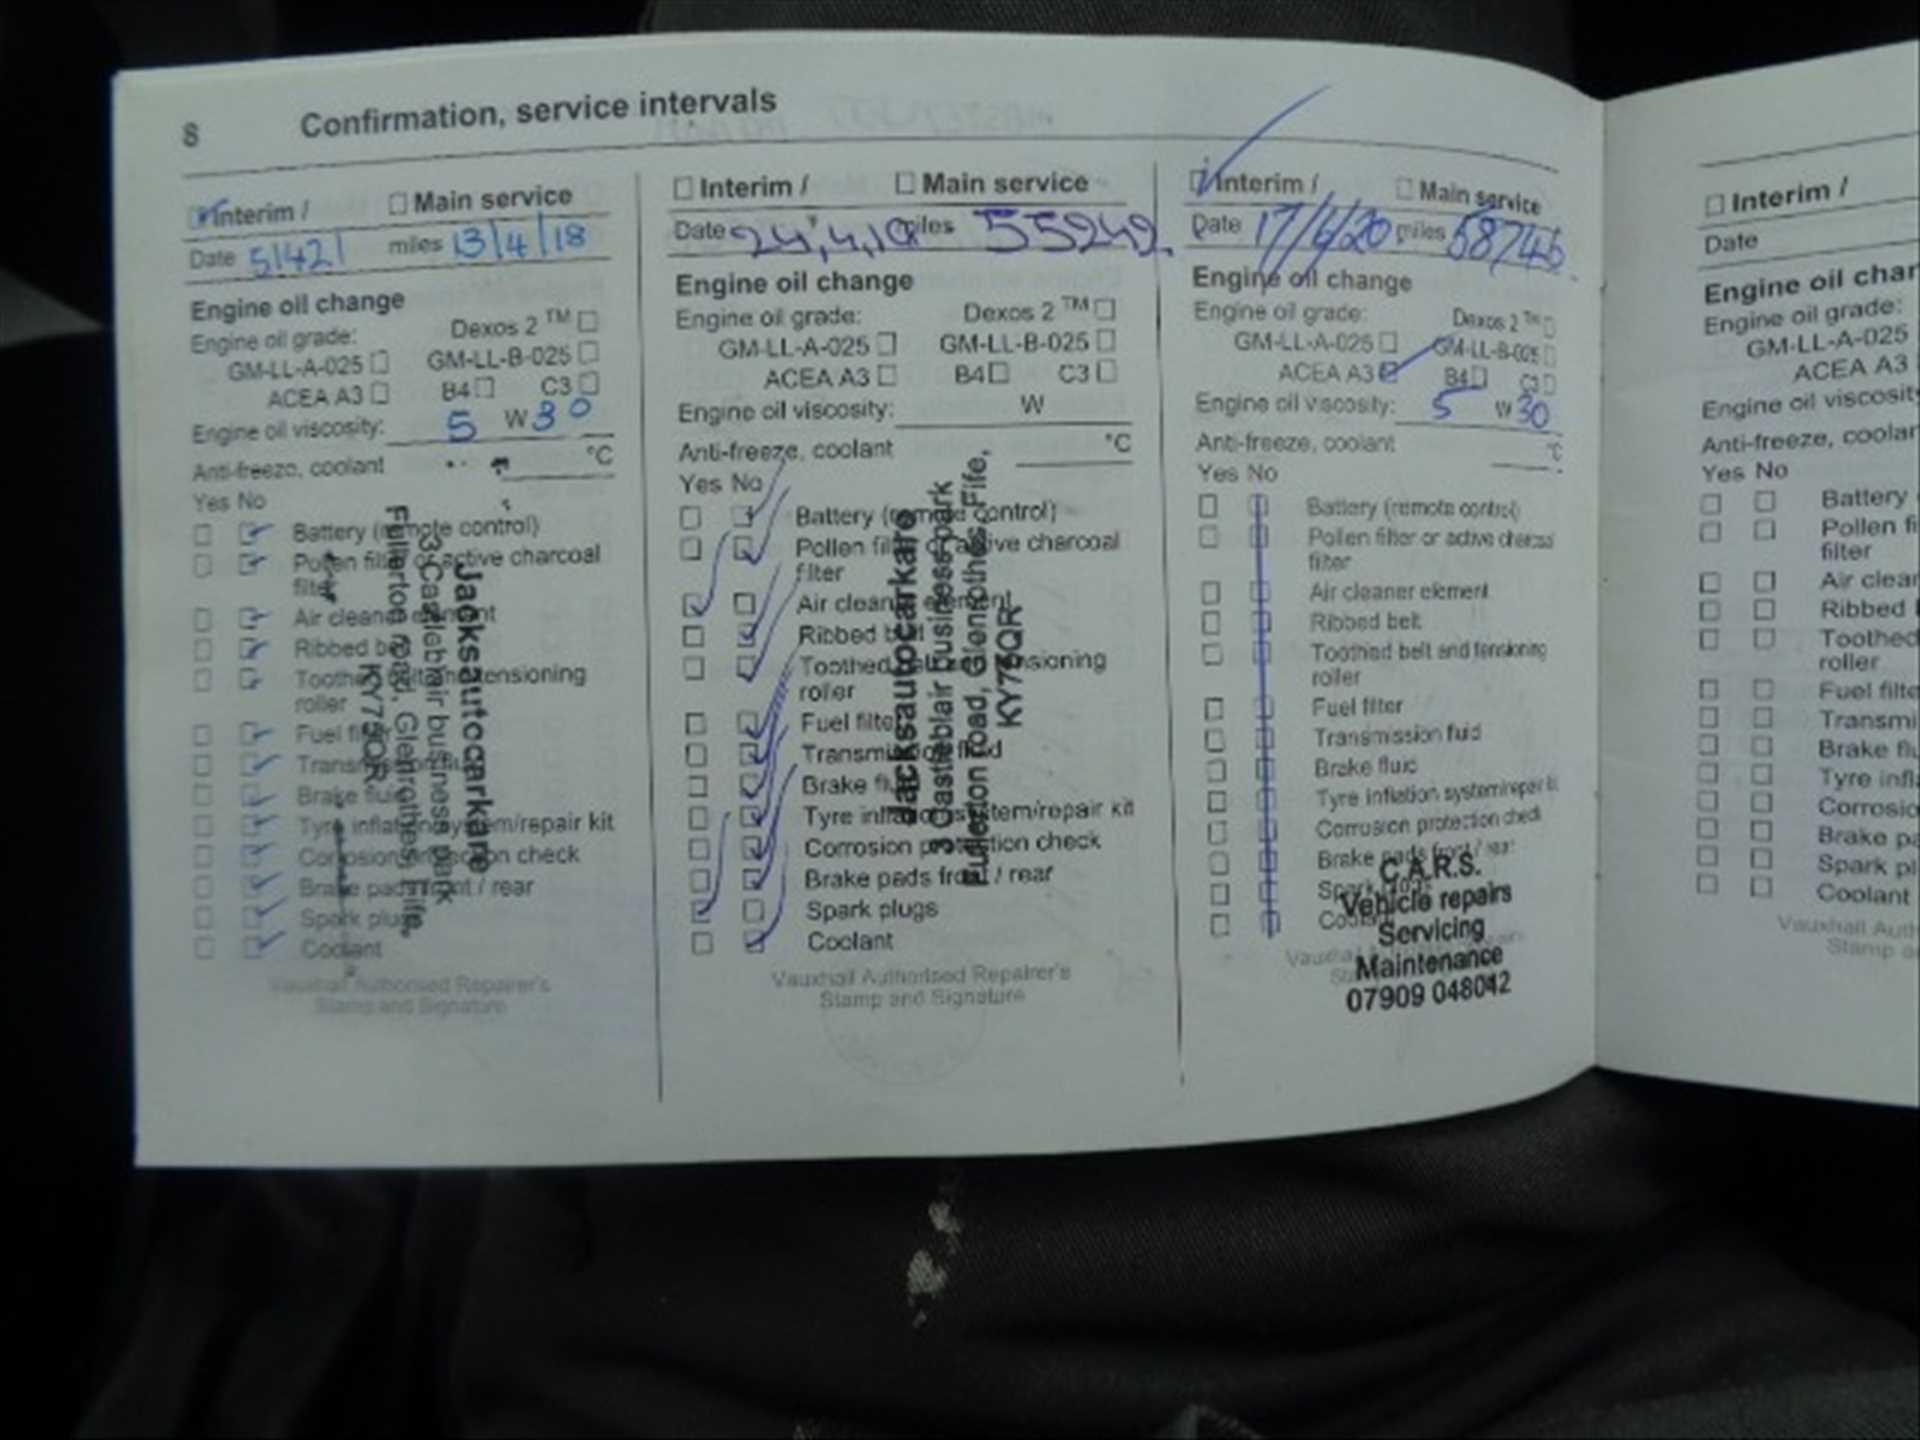 8 Confirmation, service intervals
Interim / Main service
Date 51421 miles 13/4/18
Engine oil change
Engine oil grade: Dexos 2 ™
GM-LL-A-025 GM-LL-B-025
ACEA A3 B4 C3
Engine oil viscosity: 5 W 30
Anti-freeze, coolant °C
Yes No
Battery (remote control)
Pollen filter or active charcoal
filter
Air cleaner element
Ribbed belt
Toothed belt and tensioning
roller
Fuel filter
Transmission fluid
Brake fluid
Tyre inflation system/repair kit
Corrosion protection check
Brake pads front / rear
Spark plugs
Coolant
Vauxhall Authorised Repairer's
Stamp and Signature
Jacksautocarkare
3 Castleblair business park
Fullerton road, Glenrothes, Fife,
KY75QR
Interim / Main service
Date miles 55249
Engine oil change
Engine oil grade: Dexos 2 ™
GM-LL-A-025 GM-LL-B-025
ACEA A3 B4 C3
Engine oil viscosity: W
Anti-freeze, coolant °C
Yes No
Battery (remote control)
Pollen filter or active charcoal
filter
Air cleaner element
Ribbed belt
Toothed belt and tensioning
roller
Fuel filter
Transmission fluid
Brake fluid
Tyre inflation system/repair kit
Corrosion protection check
Brake pads front / rear
Spark plugs
Coolant
Vauxhall Authorised Repairer's
Stamp and Signature
Jacksautocarkare
3 Castleblair business park
Fullerton road, Glenrothes, Fife,
KY75QR
Interim / Main service
Date miles 58746
Engine oil change
Engine oil grade: Dexos 2 ™
GM-LL-A-025 GM-LL-B-025
ACEA A3 B4 C3
Engine oil viscosity: 5 W 30
Anti-freeze, coolant °C
Yes No
Battery (remote control)
Pollen filter or active charcoal
filter
Air cleaner element
Ribbed belt
Toothed belt and tensioning
roller
Fuel filter
Transmission fluid
Brake fluid
Tyre inflation system/repair kit
Corrosion protection check
Brake pads front / rear
Spark plugs
Coolant
C.A.R.S.
Vehicle repairs
Servicing
Maintenance
07909 048042
Interim /
Date
Engine oil char
Engine oil grade:
GM-LL-A-025
ACEA A3
Engine oil viscosity
Anti-freeze, coolar
Yes No
Battery
Pollen fi
filter
Air clear
Ribbed
Toothed
roller
Fuel filte
Transmi
Brake flu
Tyre infla
Corrosio
Brake pa
Spark pl
Coolant
Vauxhall Auth
Stamp a